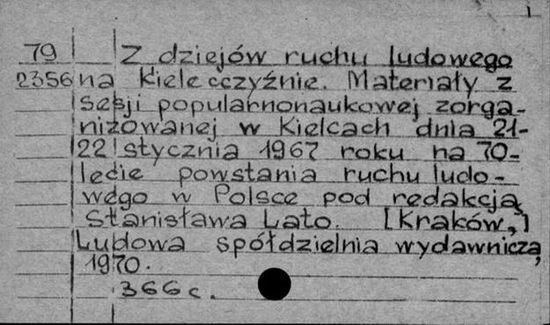 79 Z dziejów ruchu ludowego
2356 na Kielecczyźnie. Materiały z
sesji popularnonaukowej zorga-
nizowanej w Kielcach dnia 21-
22 stycznia 1967 roku na 70-
lecie powstania ruchu ludo-
wego w Polsce pod redakcją
Stanisława Lato. [Kraków,]
Ludowa spółdzielnia wydawnicza,
1970.
366 c.